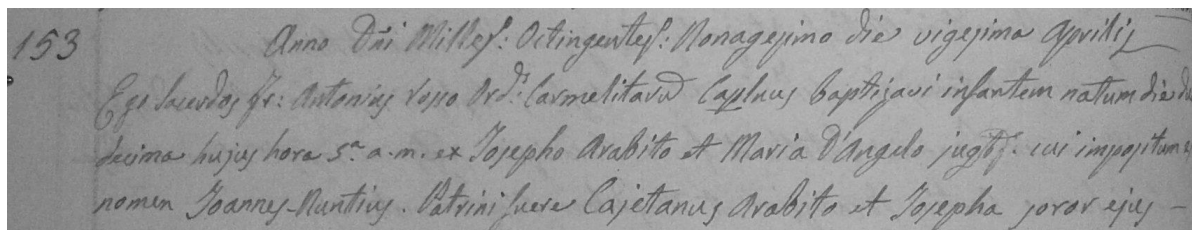 153 Anno Dñi Milles: Octingentes: Nonagesimo die vigesima Aprilis
Ego Sacerdos Fr: Antonius Rosso Ord: Carmelitarũ Caplnus baptizavi infantem natum die du
decima hujus hora 5.ª a.m. ex Josepho Arabito et Maria D'Angelo jugtƀ. cui impositum e
nomen Joannes-Nuntius. Patrini fuere Cajetanus Arabito et Josepha soror ejus -